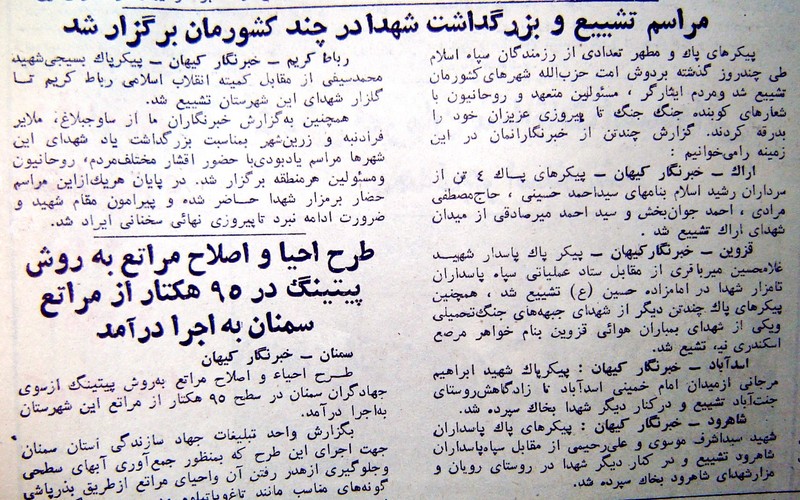 مراسم تشییع و بزرگداشت شهدا در چند کشورمان برگزار شد
پیکرهای پاک و مطهر تعدادی از رزمندگان سپاه اسلام
طی چندروز گذشته بردوش امت حزب‌الله شهرهای‌کشورمان
تشییع شد ومردم ایثارگر ، مسئولین متعهد و روحانیون با
شعارهای کوبنده جنگ جنگ تا پیروزی عزیزان خود را
بدرقه کردند. گزارش چندتن از خبرنگارانمان در این
زمینه رامی‌خوانیم :
اراک – خبرنگار کیهان – پیکرهای پاک ٤ تن از
سرداران رشید اسلام بنامهای سیداحمد حسینی ، حاج‌مصطفی
مرادی ، احمد جوان‌بخش و سید احمد میرصادقی از میدان
شهدای اراک تشییع شد .
قزوین – خبرنگارکیهان – پیکر پاک پاسدار شهید
غلامحسین میرباقری از مقابل ستاد عملیاتی سپاه پاسداران
تامزار شهدا در امامزاده حسین (ع) تشییع شد ، همچنین
پیکرهای پاک چندتن دیگر از شهدای جبهه‌های جنگ‌تحمیلی
ویکی از شهدای بمباران هوائی قزوین بنام خواهر مرصع
اسکندری نیـ، تشیع شد.
اسدآباد – خبرنگار کیهان : پیکرپاک شهید ابراهیم
مرجانی ازمیدان امام خمینی اسدآباد تا زادگاهش‌روستای
جنت‌آباد تشییع و درکنار دیگر شهدا بخاک سپرده شد.
شاهرود – خبرنگار کیهان : پیکرهای پاک پاسداران
شهید سیداشرف موسوی و علی‌رحیمی از مقابل سپاه‌پاسداران
شاهرود تشییع و در کنار دیگر شهدا در روستای رویان و
مزارشهدای شاهرود بخاک سپرده شد.
رباط کریم – خبرنگار کیهان – پیکرپاک بسیجی‌شهید
محمدسیفی از مقابل کمیته انقلاب اسلامی رباط کریم تا
گلزار شهدای این شهرستان تشییع شد.
همچنین به‌گزارش خبرنگاران ما از ساوجبلاغ، ملایر
فرادنبه و زرین‌شهر بمناسبت بزرگداشت یاد شهدای این
شهرها مراسم یادبودی‌با حضور اقشار مختلف‌مردم، روحانیون
ومسئولین هرمنطقه برگزار شد. در پایان هریک‌ازاین مراسم
حضار برمزار شهدا حاضر شده و پیرامون مقام شهید و
ضرورت ادامه نبرد تاپیروزی نهائی سخنانی ایراد شد.
طرح احیا و اصلاح مراتع به روش
پیتینگ در ۹۵ هکتار از مراتع
سمنان به اجرا درآمد
سمنان – خبرنگار کیهان
طرح احیاء و اصلاح مراتع به‌روش پیتینگ ازسوی
جهادگران سمنان در سطح ۹۵ هکتار از مراتع این شهرستان
به‌اجرا درآمد.
بگزارش واحد تبلیغات جهاد سازندگی استان سمنان
جهت اجرای این طرح که بمنظور جمع‌آوری آبهای سطحی
وجلوگیری ازهدر رفتن آن واحیای مراتع ازطریق بذرپاشی
گونه‌های مناسب مانند